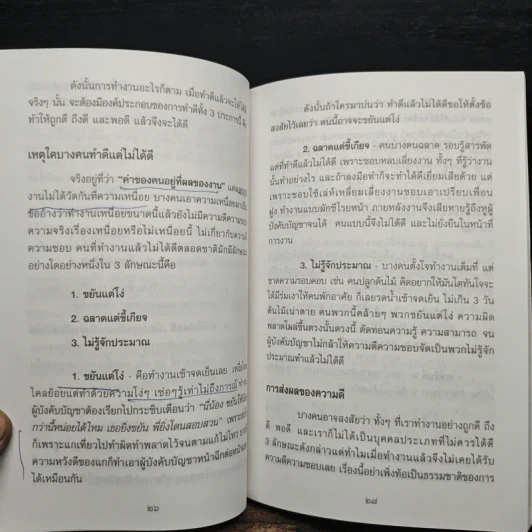 ดังนั้นการทำงานอะไรก็ตาม เมื่อทำดีแล้วจะได้ดี
จริงๆ นั้น จะต้องมีองค์ประกอบของการทำดีทั้ง 3 ประการนี้ คือ
ทำให้ถูกดี ถึงดี และพอดี แล้วจึงจะได้ดี
เหตุใดบางคนทำดีแต่ไม่ได้ดี
จริงอยู่ที่ว่า "ค่าของคนอยู่ที่ผลของงาน"
งานไม่ได้วัดกันที่ความเหนื่อย บางคนเอาความเหนื่อยมาเป็น
ข้ออ้างว่าทำงานเหนื่อยขนาดนี้แล้วยังไม่มีความดีความชอบ
ความจริงเรื่องเหนื่อยหรือไม่เหนื่อยนี้ ไม่เกี่ยวกับความดี
ความชอบ คนที่ทำงานแล้วไม่ได้ดีตลอดชาติมักมีลักษณะ
อย่างใดอย่างหนึ่งใน 3 ลักษณะนี้คือ
1. ขยันแต่โง่
2. ฉลาดแต่ขี้เกียจ
3. ไม่รู้จักประมาณ
1. ขยันแต่โง่ - คือทำงานเช้าจดเย็นเลย
ไคลย้อยแต่ทำด้วยความโง่ๆ เซ่อๆรู้เท่าไม่ถึงการณ์
ผู้บังคับบัญชาต้องเรียกไปกระซิบเตือนว่า "นี่น้อง ขยันให้
กว่านี้หน่อยได้ไหม เธอยิ่งขยัน พี่ยิ่งโดนสอบสวน"
ก็เพราะแกเที่ยวไปทำผิดทำพลาดไว้จนตามแก้ไม่ไหว
ความหวังดีของแกก็ทำเอาผู้บังคับบัญชาหน้าฉีกต่อหน้า
ได้เหมือนกัน
๒๖
ดังนั้นถ้าใครมาบ่นว่า ทำดีแล้วไม่ได้ดีขอให้ตั้งข้อ
สงสัยไว้เลยว่า คนนี้อาจจะขยันแต่โง่
2. ฉลาดแต่ขี้เกียจ - คนบางคนฉลาด รอบรู้สารพัด
แต่ที่ทำดีแล้วไม่ได้ดี เพราะชอบหลบเลี่ยงงาน ทั้งๆ ที่รู้ว่างาน
นั้นทำอย่างไร และถ้าลงมือทำก็จะทำได้ดีเยี่ยมเสียด้วย แต่
เพราะชอบใช้เล่ห์เหลี่ยมเลี่ยงงานชอบเอาเปรียบเพื่อน
ฝูง ทำงานแบบผักชีโรยหน้า ภายหลังงานจึงเสียหายรู้ถึงหูผู้
บังคับบัญชาจนได้ คนแบบนี้จึงไม่ได้ดี และไม่ยั่งยืนในหน้าที่
การงาน
3. ไม่รู้จักประมาณ - บางคนตั้งใจทำงานเต็มที่ แต่
ขาดความรอบคอบ เช่น คนปลูกต้นไม้ คิดอยากให้มันโตทันใจจะ
ได้มีร่มเงาให้คนพักอาศัย ก็เลยรดน้ำเช้าจดเย็น ไม่เกิน 3 วัน
ต้นไม้เน่าตาย คนพวกนี้คล้ายๆ พวกขยันแต่โง่ ความผิด
พลาดโผล่ขึ้นตรงนั้นตรงนี้ ตัดทอนความรู้ ความสามารถ จน
ผู้บังคับบัญชาไม่กล้าให้ความดีความชอบจัดเป็นพวกไม่รู้จัก
ประมาณทำแล้วไม่ได้ดี
การส่งผลของความดี
บางคนอาจสงสัยว่า ทั้งๆ ที่เราทำงานอย่างถูกดี ถึง
ดี พอดี และเราก็ไม่ได้เป็นบุคคลประเภทที่ไม่ควรได้ดี
3 ลักษณะดังกล่าวแต่ทำไมเมื่อทำงานแล้วจึงไม่เคยได้รับ
ความดีความชอบเลย เรื่องนี้อย่าเพิ่งท้อเป็นธรรมชาติของการ
๒๗